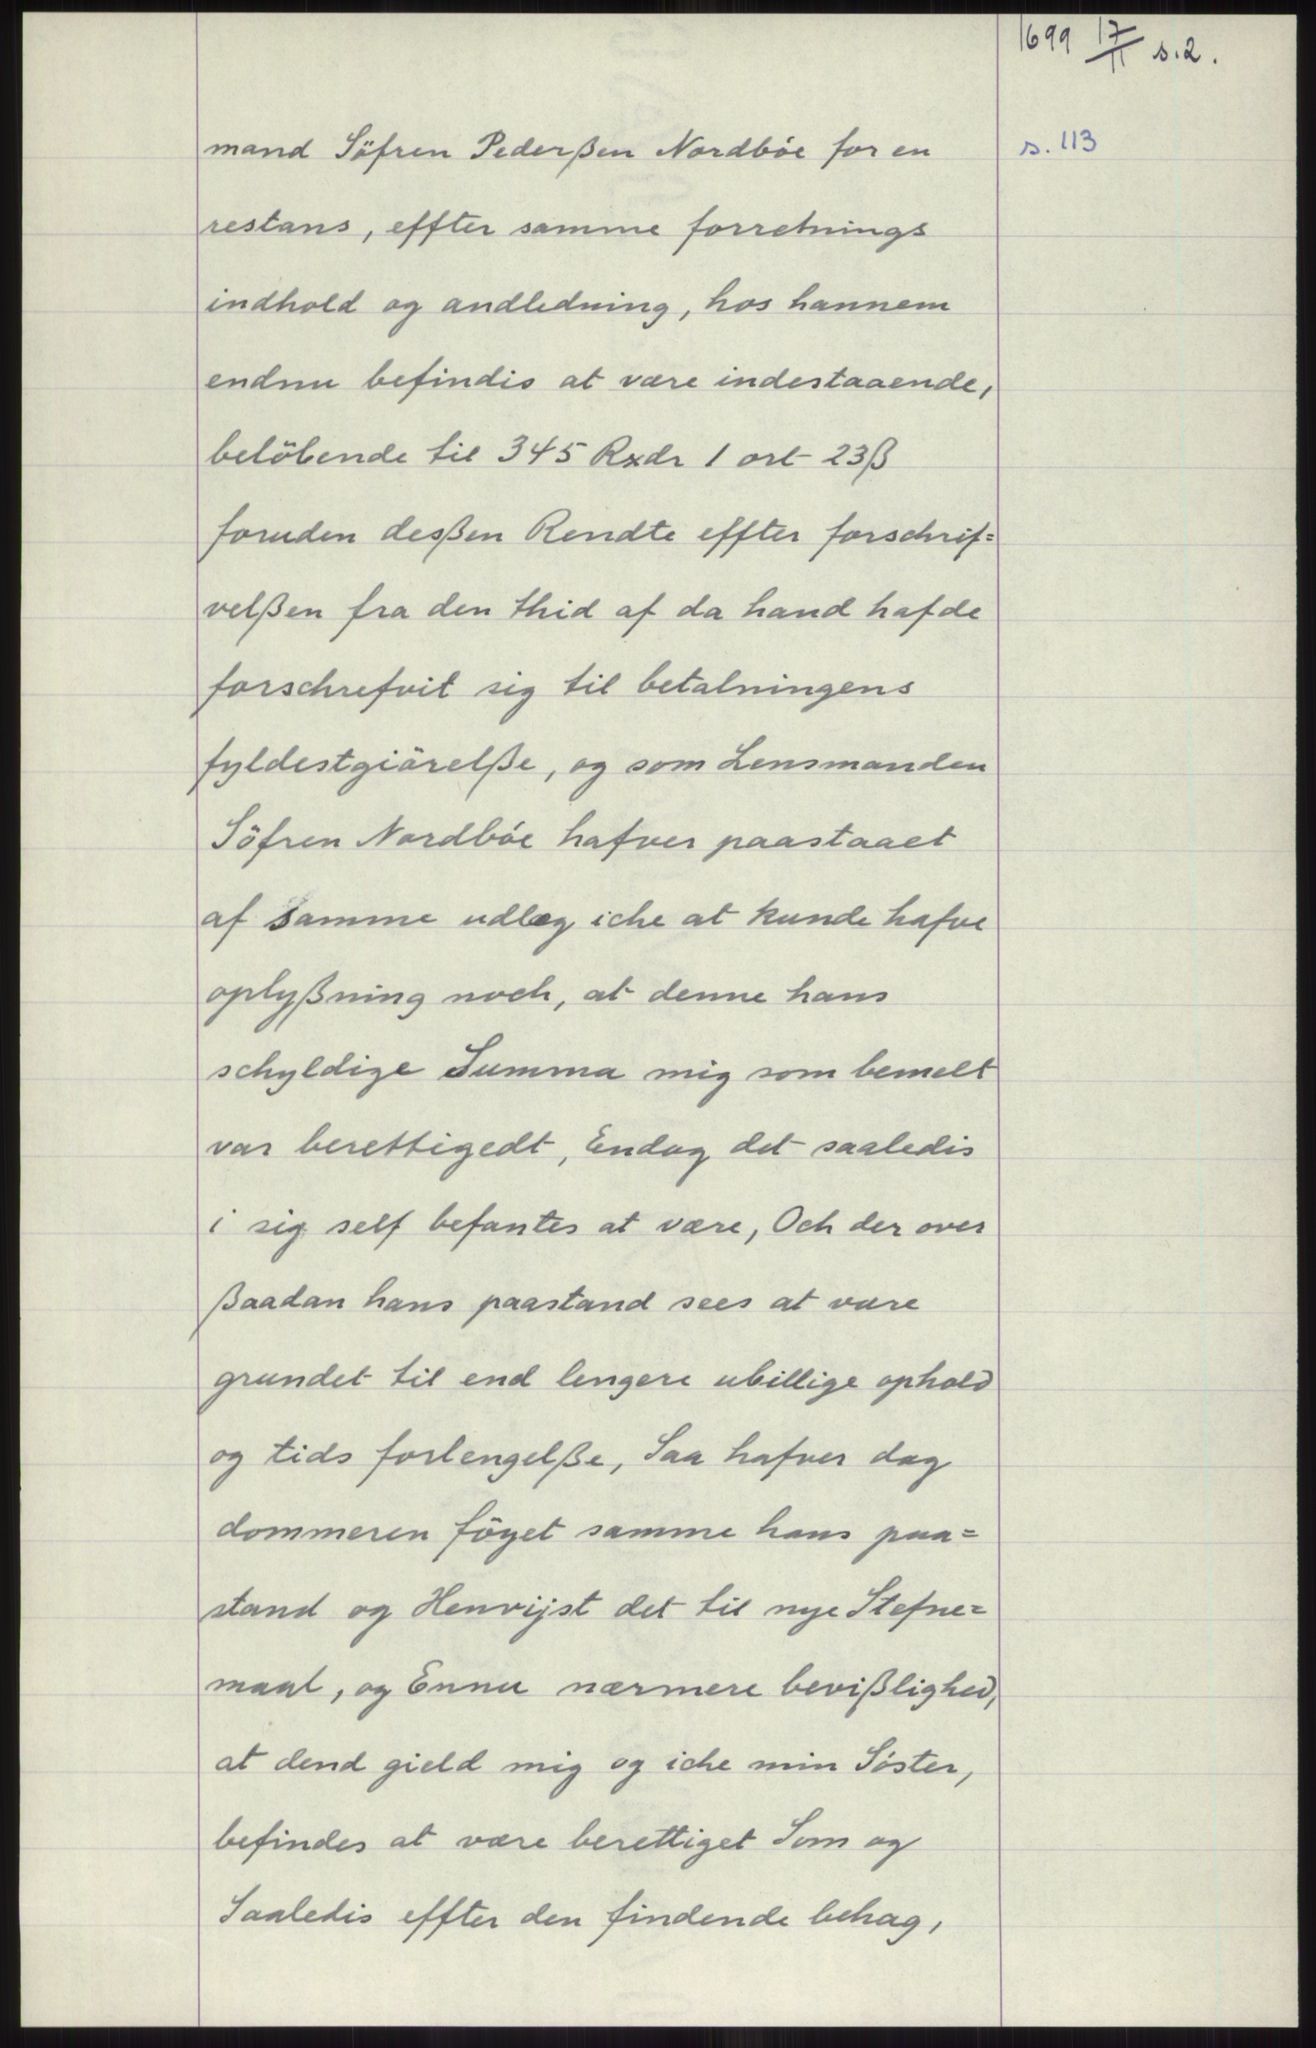 1699 17/11 s.2.
s. 113
mand Söfren Pederßen Nordbóe for en
restans, effter samme forretnings
indhold og andledning, hos hannem
endnu befindis at være indestaaende,
belöbende til 345 Rxdr 1 ort 23ß
foruden desßen Rendte effter forschrif=
velßen fra den thid af da hand hafde
forschrefvit sig til betalningens
fyldestgiörelße, og som Lensmanden
Söfren Nordbóe hafver paastaaet
af samme udlæg iche at kunde hafve
oplyßning noch, at denne hans
schyldige Summa mig som bemelt
var berettigedt, Endog det saaledis
i sig self befantes at være, Och der over
ßaadan hans paastand sees at være
grundet til end lengere ubillige ophold
og tids forlengelße, Saa hafver dog
dommeren föyet samme hans paa=
stand og Henvijst det til nye Stefne=
maal, og Ennu nærmere bevißlighed,
at dend gield mig og iche min Sóster,
befindes at være berettiget Som og
Saaledis effter den findende behag,